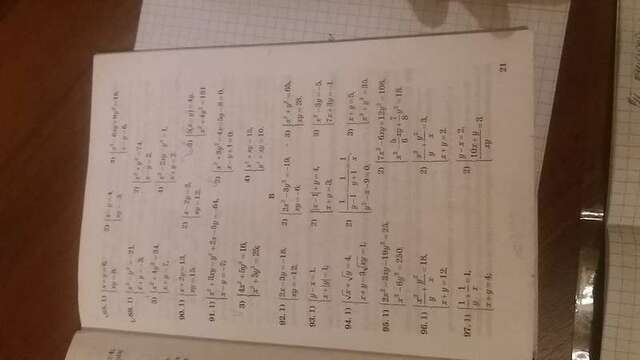 88. 1) {x+y=6, xy=8. 2) {x−y=4, xy=−3. 3) {x²−6xy+9y²=16, x−y=6.
89. 1) {x²−y²=−21, x+y=−3. 2) {x²+y²=74, x−y=2.
3) {x²+4y²=34, x+y=7. 4) {x²−2xy−y²=1, x+y=2.
90. 1) {x+2y=13, xy=15. 2) {x−2y=3, xy=12. 3) {5(x−y)=4y, x²+4y²=181
91. 1) {x²+3xy−y²+2x−5y=−64, x−y=−7; 2) {x²+3y²−4x−5y−8=0, x−y+1=0.
3) {4x²+5y²=16, x²+5y²=25; 4) {x²+xy=15, y²+xy=10.
В
92. 1) {2x−3y=−18, xy=−12; 2) {2x²−3y²=−19, xy=−6. 3) {x²+y²=65, xy=28.
93. 1) {y−x=1, x+|y|=1; 2) {|x−1|+y=4, x+y=3; 3) {x²−3y=−5, 7x+3y=−1.
94. 1) {√x+√y=4, x+y−3√xy=1; 2) {1/(y−1)−1/(y+1)=1/x, y²−x−9=0; 3) {x+y=5, x³+y³=35.
95. 1) {2x²−3xy−19y²=25, x²−6y²=250; 2) {7x²−6xy+12y²=108, x²−5/6xy+7/8y²=18.
96. 1) {x²/y+y²/x=18, x+y=12. 2) {x²/y+y²/x=3, x+y=2.
97. 1) {1/y+1/x=1, x+y=4; 2) {y−x=2, (10x+y)/xy=3
21